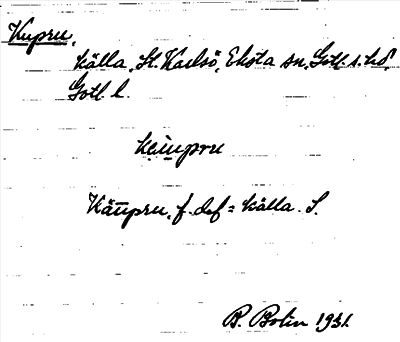 Kupru,
källa, St. Karlsö, Eksta sn, Gotl. s. hd.
Gotl. l.
käupru
Käupru, f. def = källa. S.
B. Bolin 1931.